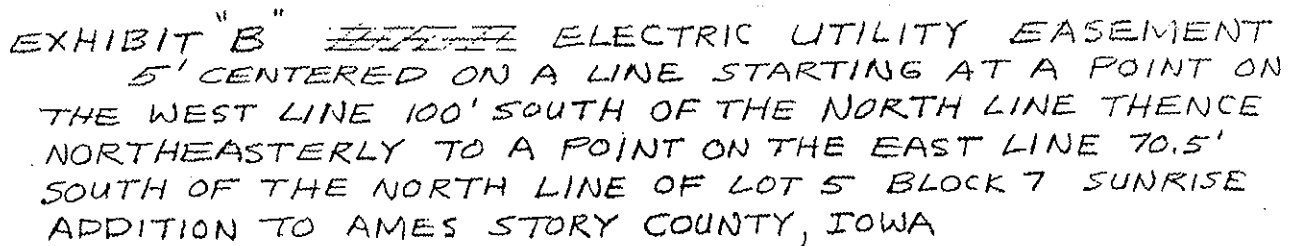 EXHIBIT "B" ELECTRIC UTILITY EASEMENT
5' CENTERED ON A LINE STARTING AT A POINT ON
THE WEST LINE 100' SOUTH OF THE NORTH LINE THENCE
NORTHEASTERLY TO A POINT ON THE EAST LINE 70.5'
SOUTH OF THE NORTH LINE OF LOT 5 BLOCK 7 SUNRISE
ADDITION TO AMES STORY COUNTY, IOWA